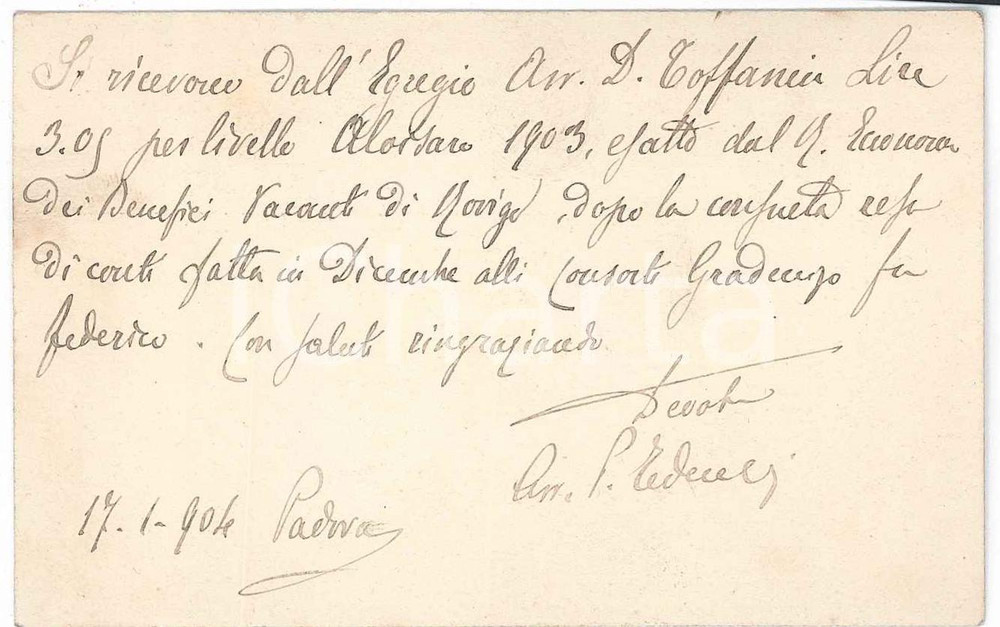 Si ricevono dall'Egregio Avv. D. Toffanin Lire
3.05 per livello 1903, esatto dal R. Economo
dei Benefici Vacanti di Rovigo, dopo la consueta resa
di conti fatta in Dicembre alli Consorti Gradenigo fu
Federico. Con saluti ringraziando
Devoto
Avv. P.
17-1-904 Padova
iCharta